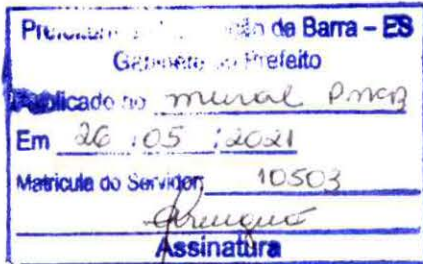 de Barra – ES
Gabinete do Prefeito
Publicado no mural PMCB
Em 26 / 05 / 2021
Matricula do Servidor: 10503
Assinatura